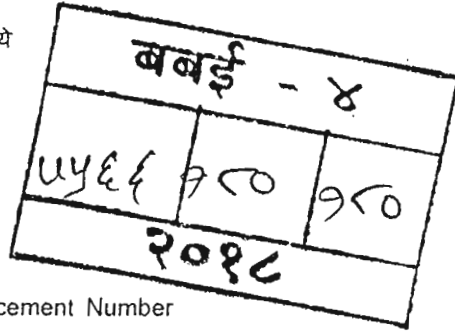 ये
बबई - ४
५५६६ १८० १८०
२०१८
cement Number